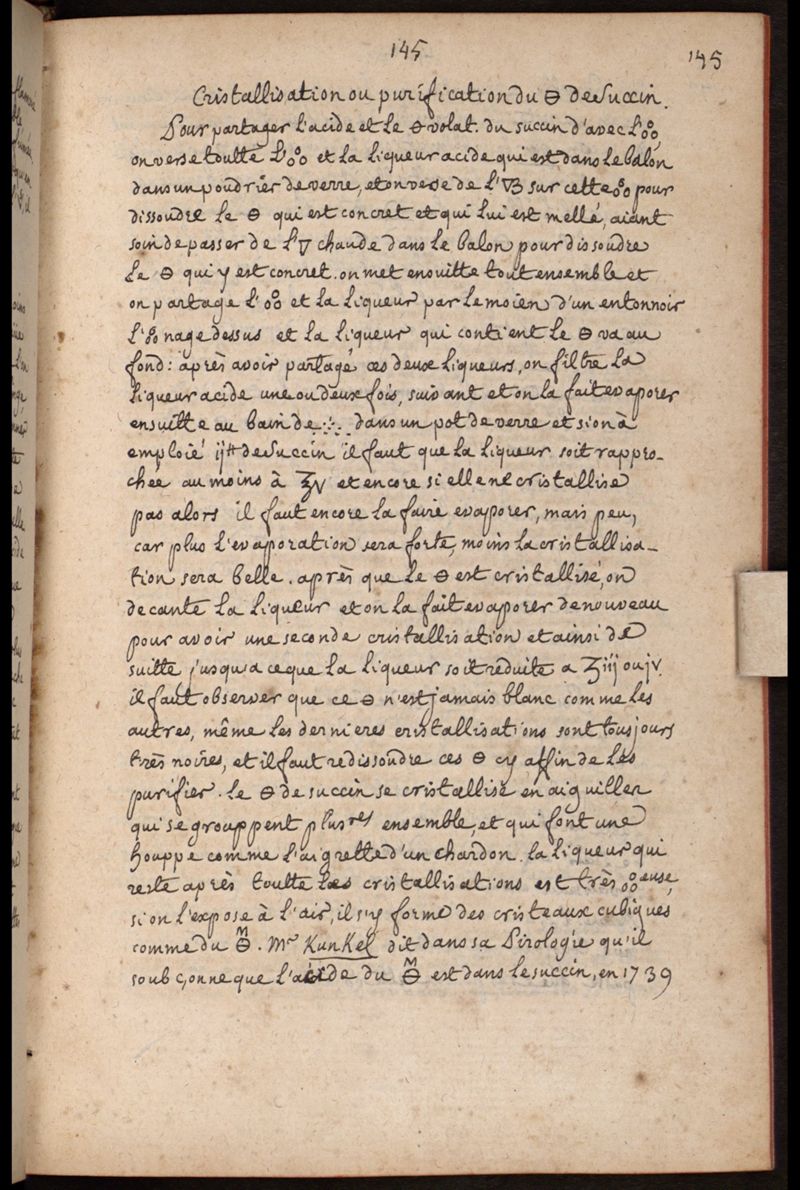 145
145
Cristallisation ou purification du 🜔 de Succin.
Pour partager l'acide et le 🜔 volat. du succin d'avec l'🝆
on verse toutte l'🝆 et la liqueur acide qui est dans le balon
dans un poudrier de verre, et on verse de l'🜄 sur cette 🝆 pour
dissoudre le 🜔 qui est concret et qui lui est mellé, aiant
soin de passer de l'🜄 chaude dans le balon pour dissoudre
le 🜔 qui y est concret. on met ensuitte tout ensemble et
on partage l'🝆 et la liqueur par le moien d'un entonnoir
l'🝆 nage dessus et la liqueur qui contient le 🜔 va au
fond: après avoir partagé ces deux liqueurs, on filtre la
liqueur acide une ou deux fois, suivant et on la fait evaporer
ensuitte au bain de ∴ dans un pot de verre et si on à
emploié ij℔ de Succin il faut que la liqueur soit rappro-
chée au moins à ℥v et encore si elle ne cristallise
pas alors il faut encore la faire evaporer, mais peu,
car plus l'evaporation sera forte, moins la cristallisa-
tion sera belle. après que le 🜔 est cristallisé, on
decante la liqueur et on la fait evaporer de nouveau
pour avoir une seconde cristallisation et ainsi de
suitte jusqu'a ce que la liqueur soit reduite a ℥iij ou jv.
il faut observer que ce 🜔 n'est jamais blanc comme les
autres, même les dernieres cristallisations sont tousjours
très noires, et il faut redissoudre ces 🜔 cy affin de les
purifier. le 🜔 de succin se cristallise en aiguilles
qui se grouppent plus.res ensemble, et qui font une
houppe comme l'aigrette d'un chardon. la liqueur qui
reste après toutte les cristallisations est très 🝆euse,
si on l'expose à l'air, il s'y forme des cristeaux cubiques
comme du 🜔M. Mr KunKel dit dans sa Pirologie qu'il
soubçonne que l'acide du 🜔M est dans le succin, en 1739